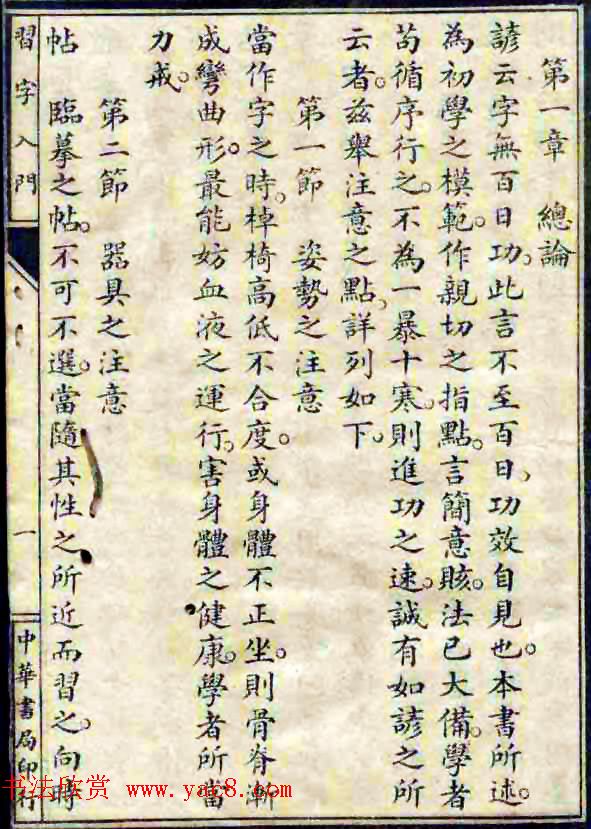 第一章　總論
諺云字無百日功。此言不至百日。功效自見也。本書所述。
為初學之模範。作親切之指點。言簡意賅。法已大備。學者
苟循序行之。不為一暴十寒。則進功之速。誠有如諺之所
云者。茲舉注意之點。詳列如下。
第一節　姿勢之注意
當作字之時。棹椅高低不合度。或身體不正坐。則骨脊漸
成彎曲形。最能妨血液之運行。害身體之健康。學者所當
力戒。
第二節　器具之注意
帖　臨摹之帖。不可不選。當隨其性之所近而習之。向時
習字入門
一
中華書局印行
书法欣赏 www.yac8.com